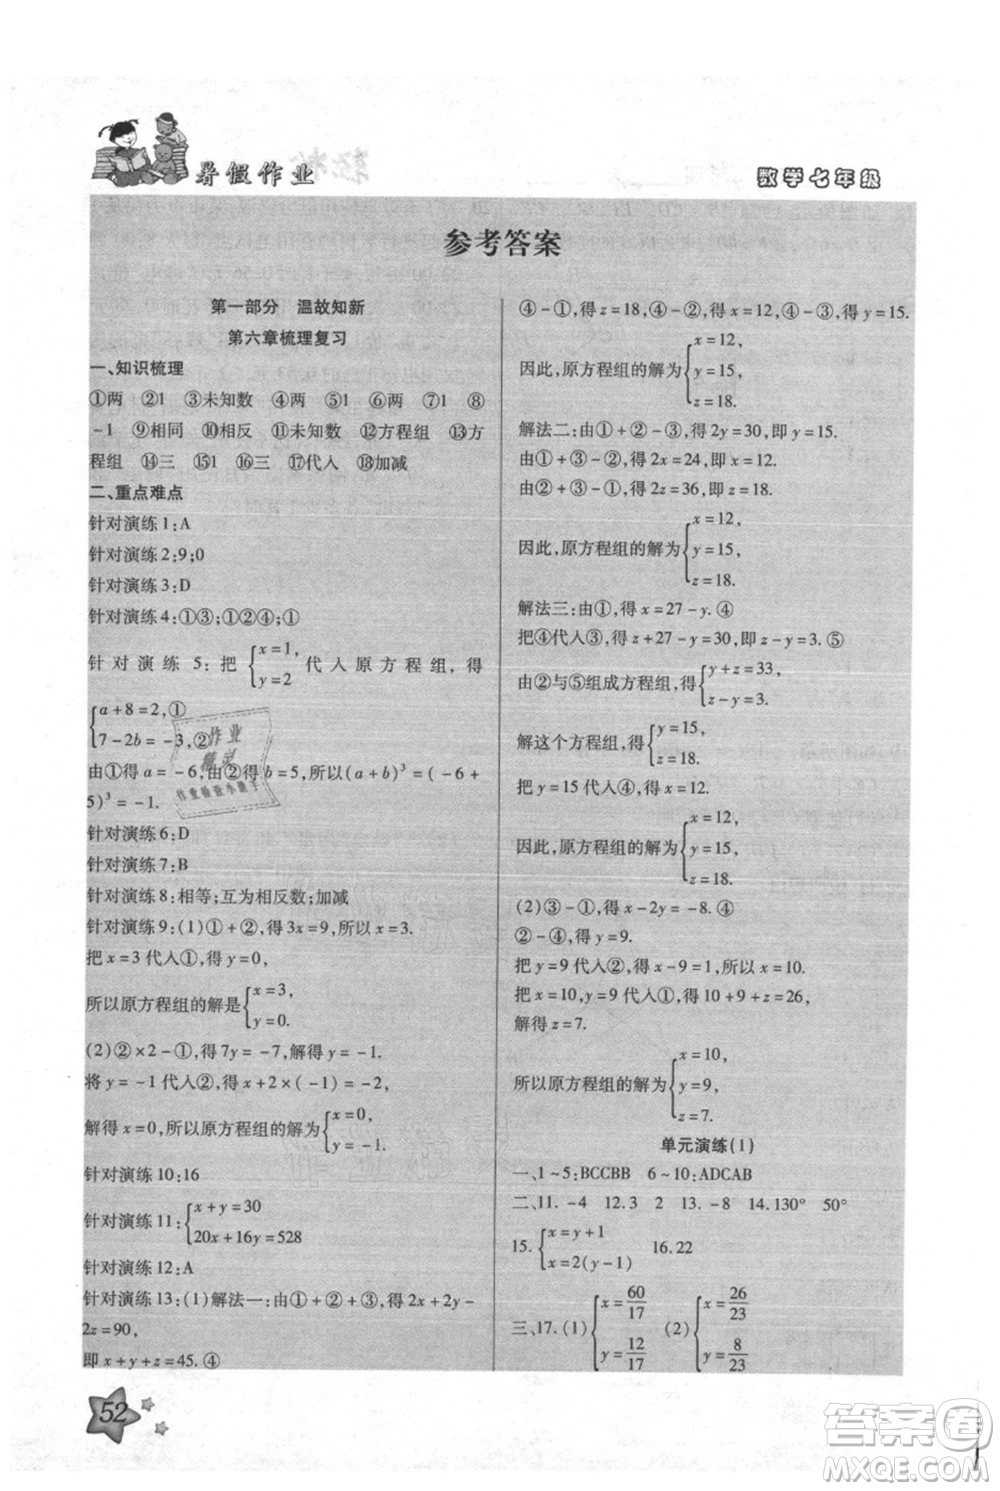 暑假作业
数学七年级
参考答案
第一部分 温故知新
第六章梳理复习
一、知识梳理
①两 ②1 ③未知数 ④两 ⑤1 ⑥两 ⑦1 ⑧
-1 ⑨相同 ⑩相反 ⑪未知数 ⑫方程组 ⑬方
程组 ⑭三 ⑮1 ⑯三 ⑰代入 ⑱加减
二、重点难点
针对演练1:A
针对演练2:9;0
针对演练3:D
针对演练4:①③;②④;①
针对演练5:把{x=1, y=2 代入原方程组,得
{a+8=2,① 7-2b=-3,②
由①得a=-6,由②得b=5,所以(a+b)³=(-6+
5)³=-1.
针对演练6:D
针对演练7:B
针对演练8:相等;互为相反数;加减
针对演练9:(1)①+②,得3x=9,所以x=3.
把x=3代入①,得y=0,
所以原方程组的解是{x=3, y=0.
(2)②×2-①,得7y=-7,解得y=-1.
将y=-1代入②,得x+2×(-1)=-2,
解得x=0,所以原方程组的解为{x=0, y=-1.
针对演练10:16
针对演练11:{x+y=30 20x+16y=528
针对演练12:A
针对演练13:(1)解法一:由①+②+③,得2x+2y-
2z=90,
即x+y+z=45.④
④-①,得z=18,④-②,得x=12,④-③,得y=15.
因此,原方程组的解为{x=12, y=15, z=18.
解法二:由①+②-③,得2y=30,即y=15.
由①+③-②,得2x=24,即x=12.
由②+③-①,得2z=36,即z=18.
因此,原方程组的解为{x=12, y=15, z=18.
解法三:由①,得x=27-y.④
把④代入③,得z+27-y=33-3.⑤
由②与⑤组成方程组,得{y+z=33, z-y=3.
解这个方程组,得{y=15, z=18.
把y=15代入④,得x=12.
因此,原方程组的解为{x=12, y=15, z=18.
(2)③-①,得x-2y=-8.④
②-④,得y=9.
把y=9代入②,得x-9=1,所以x=10.
把x=10,y=9代入①,得10+9+z=26,
解得z=7.
所以原方程组的解为{x=10, y=9, z=7.
单元演练(1)
一、1~5:BCCBB 6~10:ADCAB
二、11.-4 12.3 2 13.-8 14.130° 50°
15.{x=y+1 x=2(y-1) 16.22
三、17.(1){x=60/17 y=12/17 (2){x=26/23 y=8/23
52
作业
精灵
作业检查小助手
答案卷
MXQE.COM